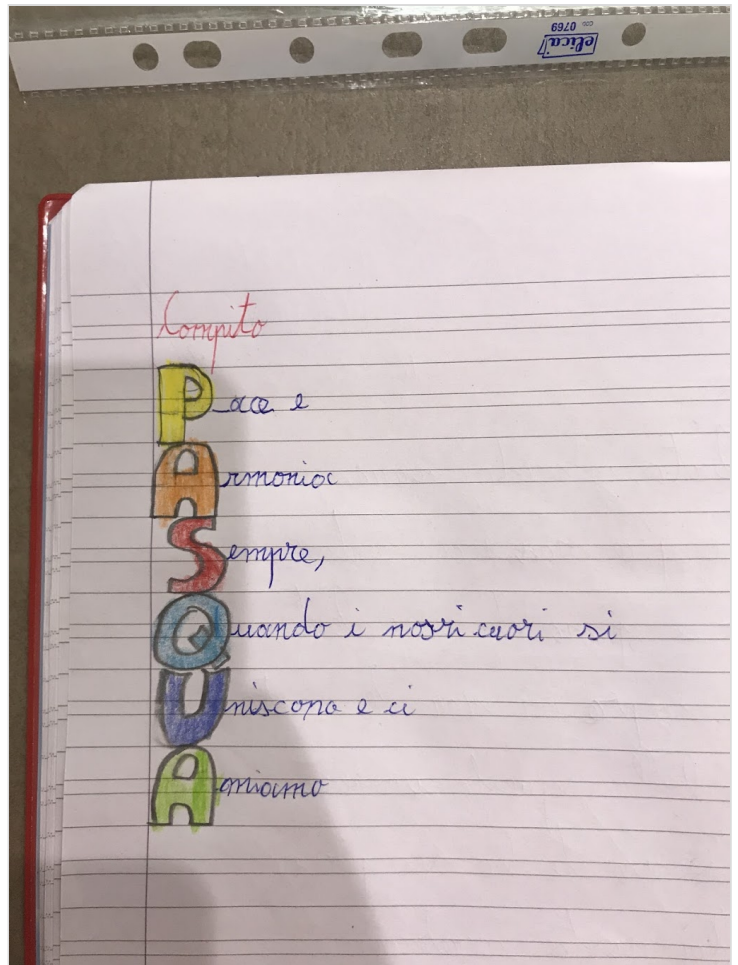 elica
COD. 0769
Compito
Pace e
Armonia
Sempre,
Quando i nostri cuori si
Uniscono e ci
Amiamo